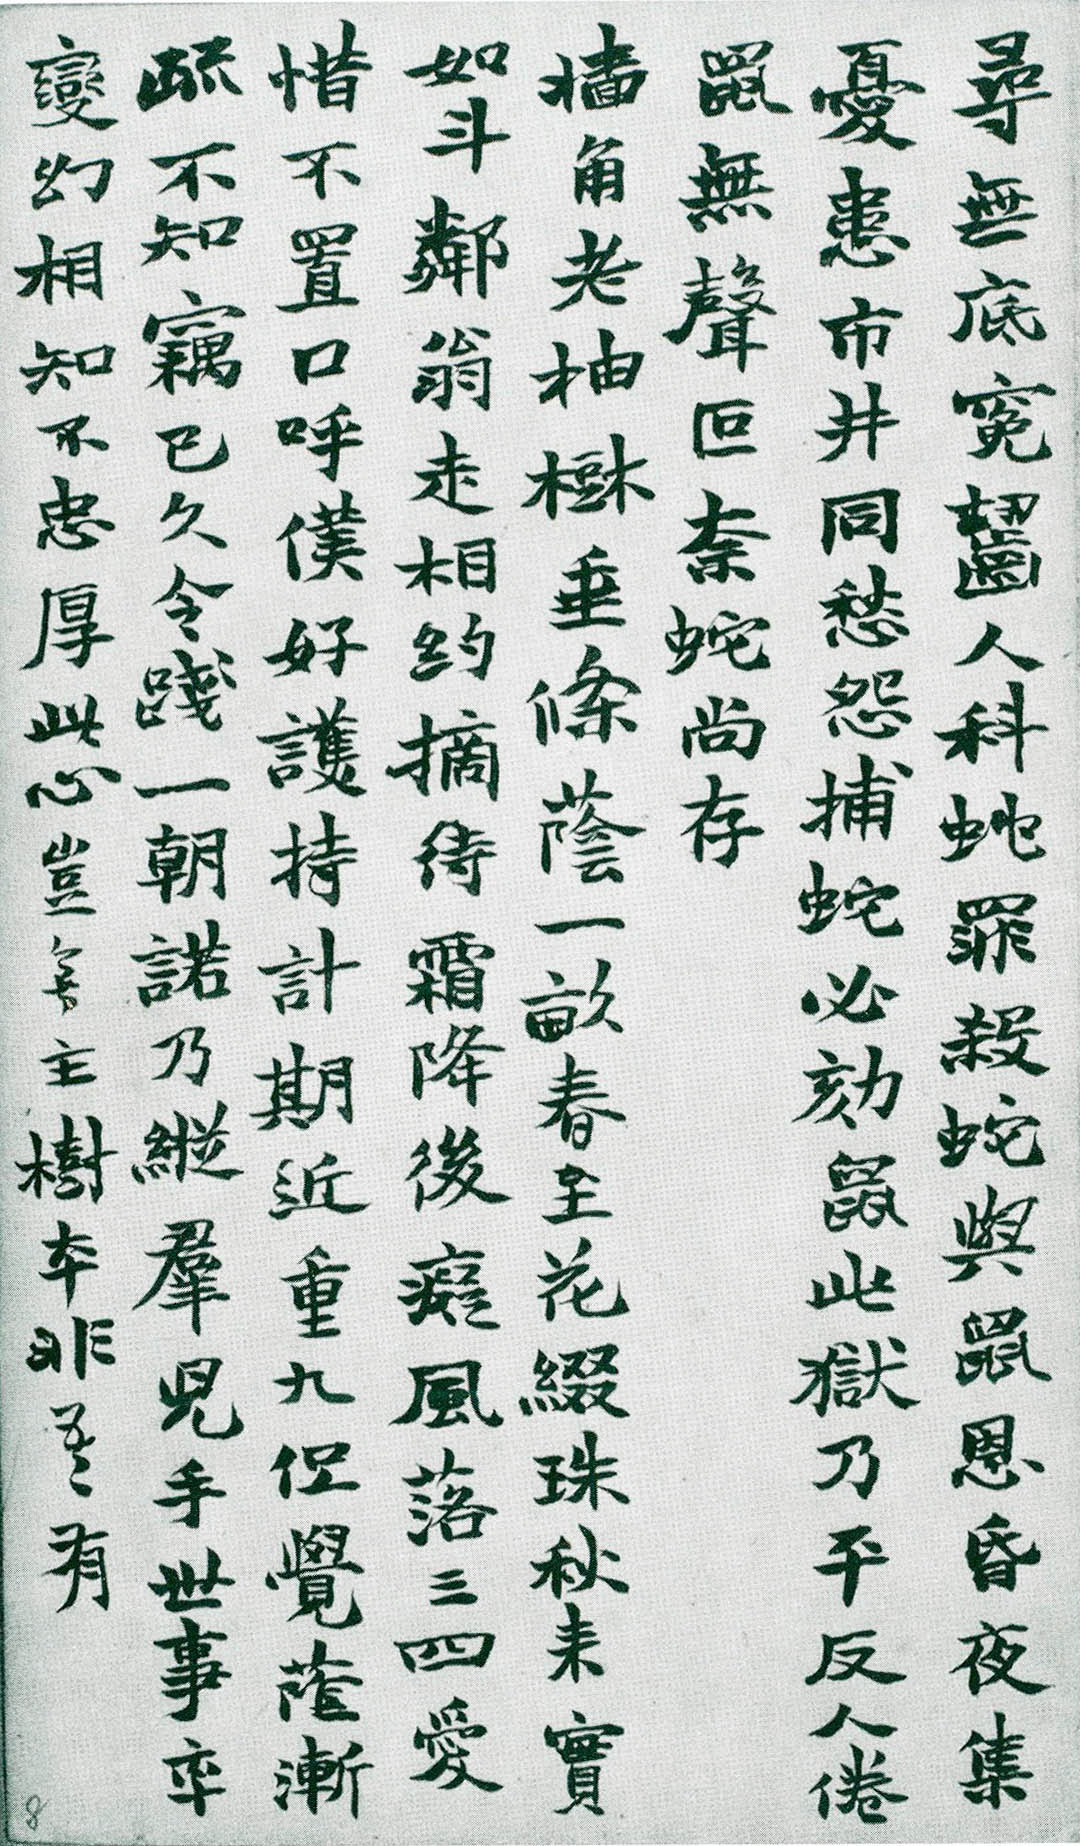 尋無底冤齧人科蛇罪殺蛇與鼠恩昏夜集
憂患市井同愁怨捕蛇必劾鼠此獄乃平反人倦
鼠無聲叵奈蛇尚存
墻角老柚樹垂條蔭一畝春至花綴珠秋來實
如斗鄰翁走相約摘待霜降後癡風落三四愛
惜不置口呼僕好護持計期近重九但覺蔭漸
疏不知竊已久令踐一朝諾乃縱羣兒手世事卒
變幻相知不忠厚此心豈無主樹本非吾有
8